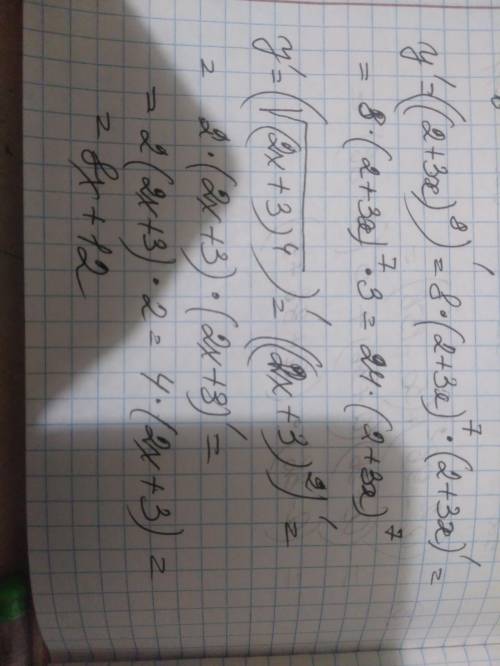 y' = ((2+3x)⁸)' = 8·(2+3x)⁷·(2+3x)' =
= 8·(2+3x)⁷·3 = 24·(2+3x)⁷
y' = (√(2x+3)⁴)' = ((2x+3)²)' =
= 2·(2x+3)·(2x+3)' =
= 2(2x+3)·2 = 4·(2x+3) =
= 8x+12